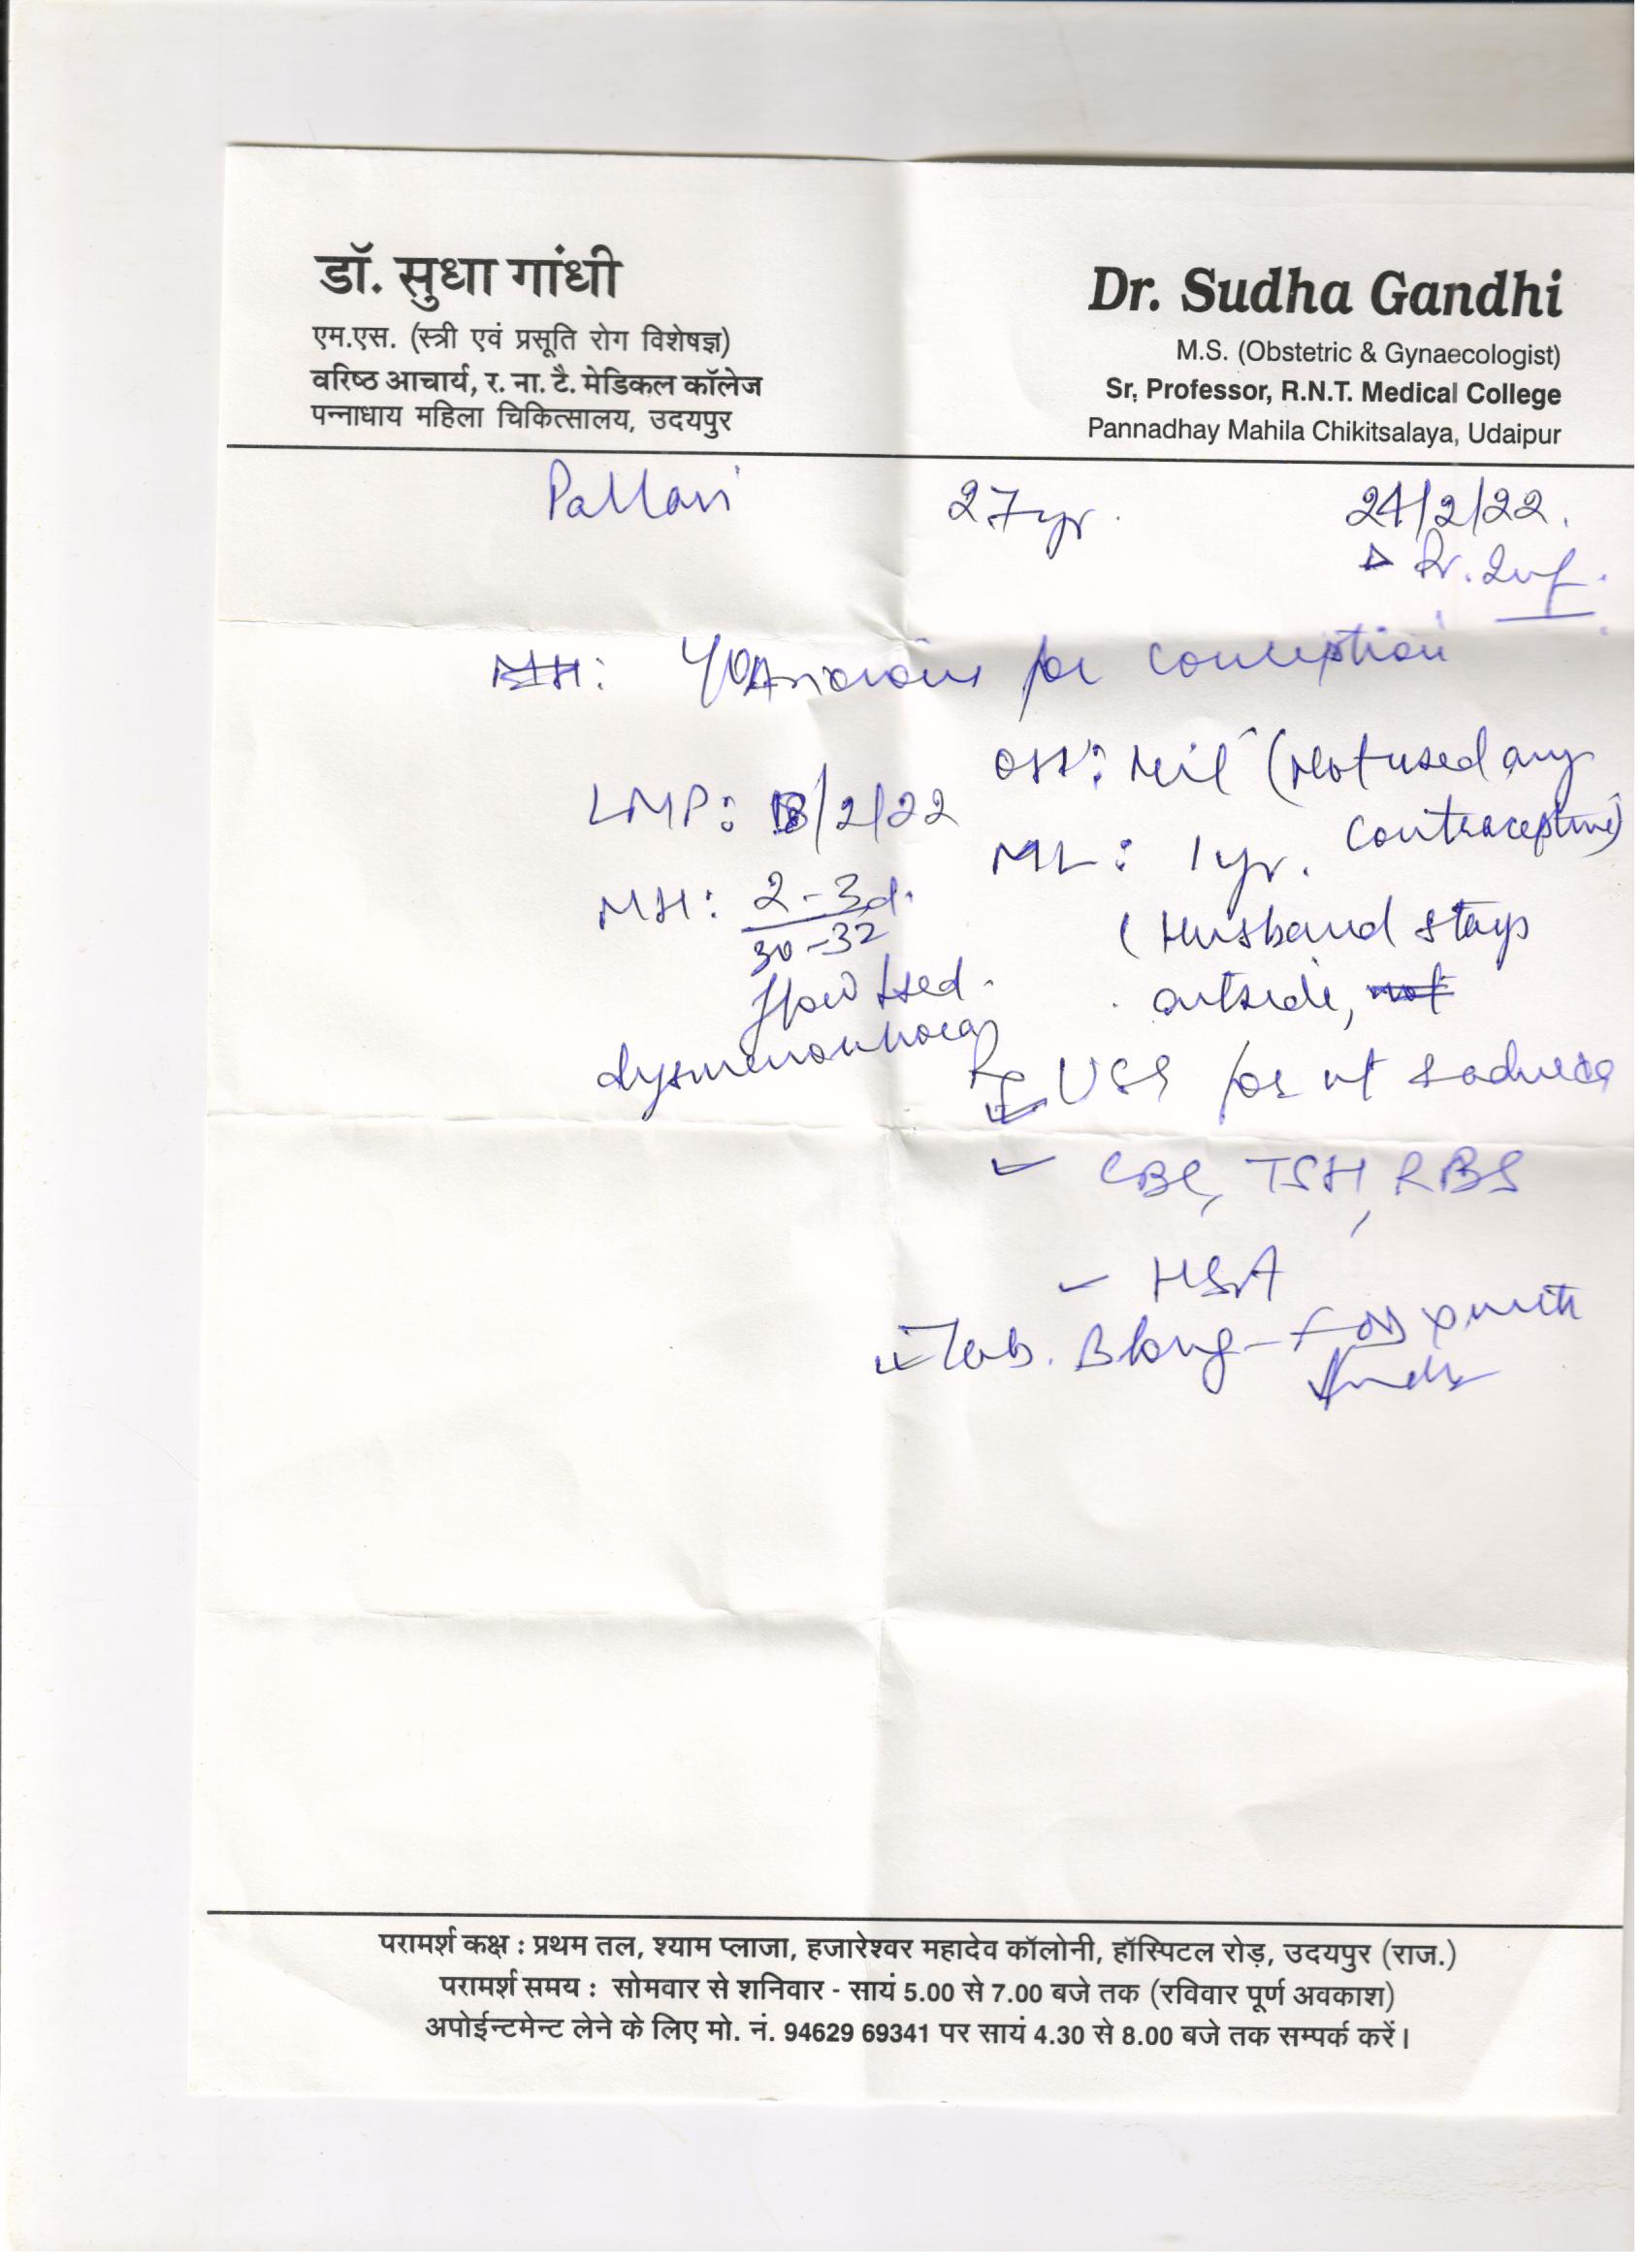 डॉ. सुधा गांधी
एम.एस. (स्त्री एवं प्रसूति रोग विशेषज्ञ)
वरिष्ठ आचार्य, र. ना. टै. मेडिकल कॉलेज
पन्नाधाय महिला चिकित्सालय, उदयपुर
Dr. Sudha Gandhi
M.S. (Obstetric & Gynaecologist)
Sr. Professor, R.N.T. Medical College
Pannadhay Mahila Chikitsalaya, Udaipur
Pallavi 27yr. 24/2/22.
Pr. Inf.
Anxious for conception
OH: Nil (Not used any
contraceptive)
LMP: /2/22
ML: 1 yr.
MH: 2-3d.
30-32
(Husband stays
outside, not
flow
dysmenorrhoea
USG for ut & adnexa
CBC, TSH, RBS
HSA
Tab.
परामर्श कक्ष : प्रथम तल, श्याम प्लाजा, हजारेश्वर महादेव कॉलोनी, हॉस्पिटल रोड़, उदयपुर (राज.)
परामर्श समय : सोमवार से शनिवार - सायं 5.00 से 7.00 बजे तक (रविवार पूर्ण अवकाश)
अपोईन्टमेन्ट लेने के लिए मो. नं. 94629 69341 पर सायं 4.30 से 8.00 बजे तक सम्पर्क करें।